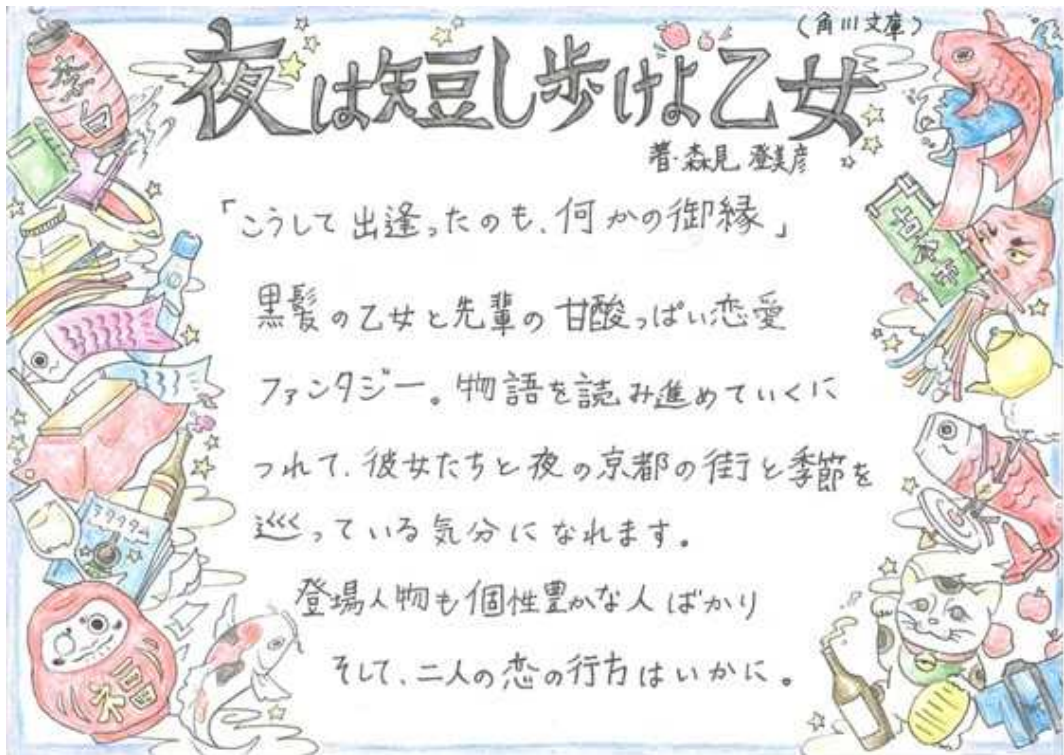 (角川文庫)
夜は短し歩けよ乙女
著・森見 登美彦
「こうして出逢ったのも、何かの御縁」
黒髪の乙女と先輩の甘酸っぱい恋愛
ファンタジー。物語を読み進めていくに
つれて、彼女たちと夜の京都の街と季節を
巡っている気分になれます。
登場人物も個性豊かな人ばかり
そして、二人の恋の行方はいかに。
李白
福